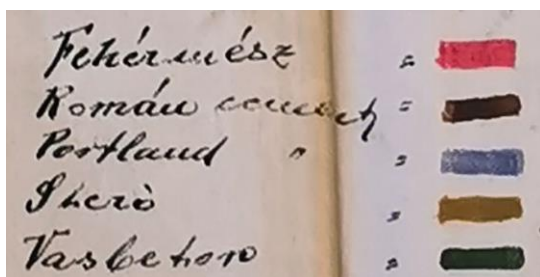 Fehérmész =
Román cement =
Portland " =
Sherò =
Vasbeton =